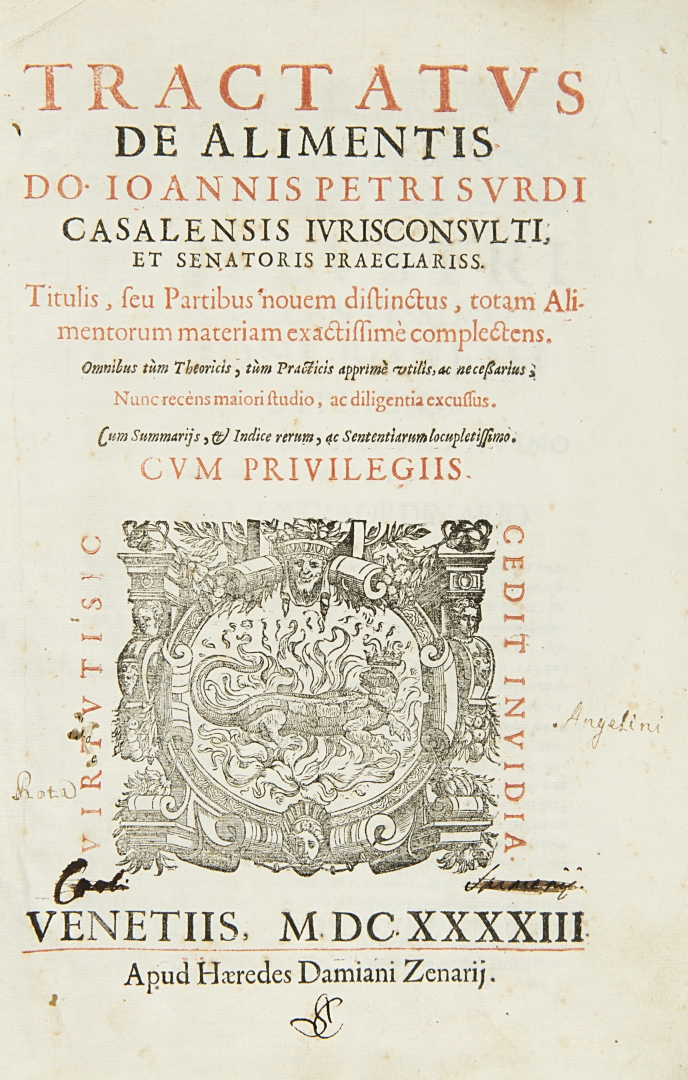 TRACTATVS
DE ALIMENTIS
DO· IOANNIS PETRI SVRDI
CASALENSIS IVRISCONSVLTI,
ET SENATORIS PRAECLARISS.
Titulis, ſeu Partibus nouem diſtinctus, totam Ali-
mentorum materiam exactiſſimè complectens.
Omnibus tùm Theoricis, tùm Practicis apprimè vtilis, ac neceßarius;
Nunc recèns maiori ſtudio, ac diligentia excuſſus.
Cum Summarijs, & Indice rerum, ac Sententiarum locupletiſſimo.
CVM PRIVILEGIIS.
VIRTVTI SIC
CEDIT INVIDIA.
Rota
Angelini
VENETIIS, M. DC. XXXXIII.
Apud Hæredes Damiani Zenarij.